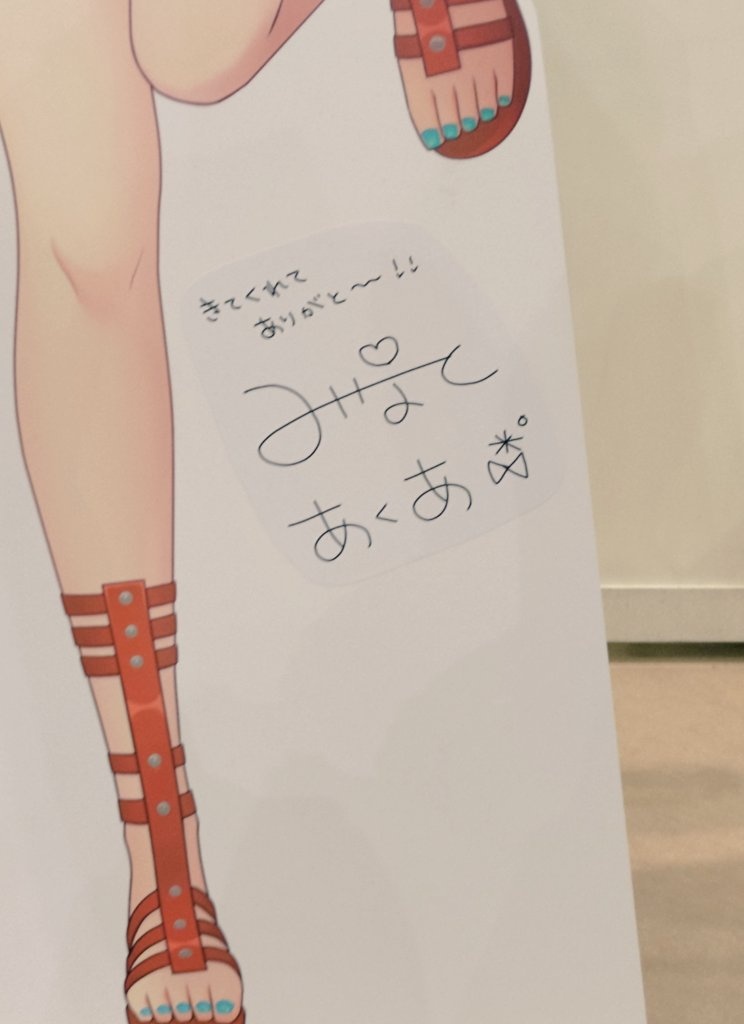 きてくれて
ありがと〜!!
みなと
あくあ